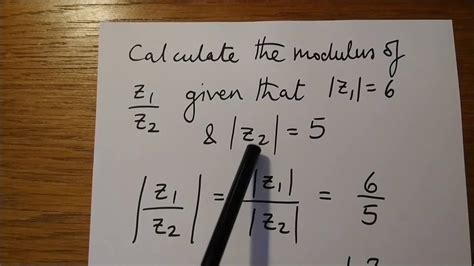 Calculate the modulus of
z₁/z₂ given that |z₁| = 6
& |z₂| = 5
|z₁/z₂| = |z₁|/|z₂| = 6/5